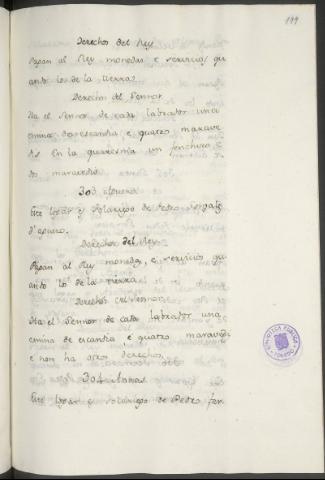 199
Derechos del Rey
Pagan al Rey monedas e servicios qu
ando los de la tierra.
Derechos del Sennor
Ha el Sennor de cada labrador una
emina de escandia e quatro marave
dis En la quaresma un
dos maravedis
303
Este logar es Solariego de Pedro
Derechos del Rey.
Pagan al Rey monedas, e servicios qu
ando los de la tierra
Derechos del Sennor.
Ha el Sennor de cada labrador una
emina de escandia e quatro maravedis
e non ha otros derechos.
304
Este logar es Solariego de Pedro fer